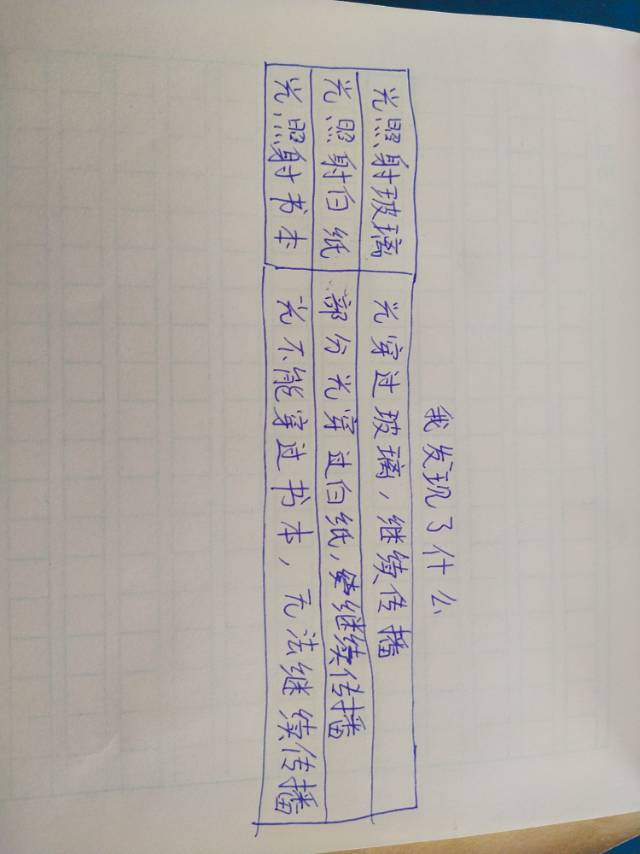 我发现了什么
光照射玻璃 光穿过玻璃，继续传播
光照射白纸 部分光穿过白纸，继续传播
光照射书本 光不能穿过书本，无法继续传播